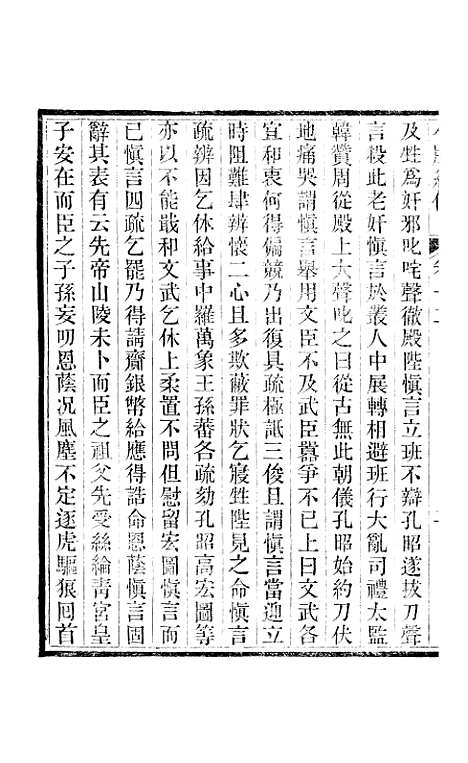 小腆紀傳　卷十二
及甡為奸邪叱咤聲徹殿陛愼言立班不辯孔昭遂拔刀聲
言殺此老奸愼言於叢人中展轉相避班行大亂司禮太監
韓贊周從殿上大聲叱之曰從古無此朝儀孔昭始約刀伏
地痛哭謂愼言舉用文臣不及武臣囂爭不已上曰文武各
宜和衷何得偏競乃出復具疏極詆三俊且謂愼言當迎立
時阻難肆辨懷二心且多欺蔽罪狀乞寢甡陛見之命愼言
疏辨因乞休給事中羅萬象王孫蕃各疏劾孔昭高宏圖等
亦以不能戢和文武乞休上柔置不問但慰留宏圖愼言而
已愼言四疏乞罷乃得請齎銀幣給應得誥命恩蔭愼言固
辭其表有云先帝山陵未卜而臣之祖父先受絲綸青宮皇
子安在而臣之子孫妄叨恩蔭況風塵不定逐虎驅狼囘首